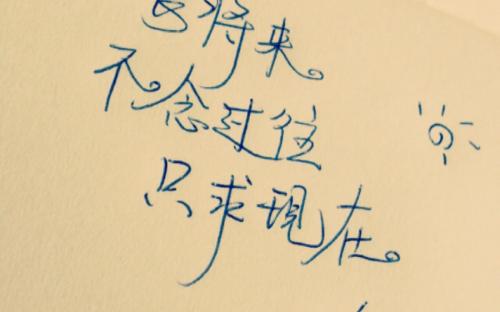 将来。
不念过往
只求现在。